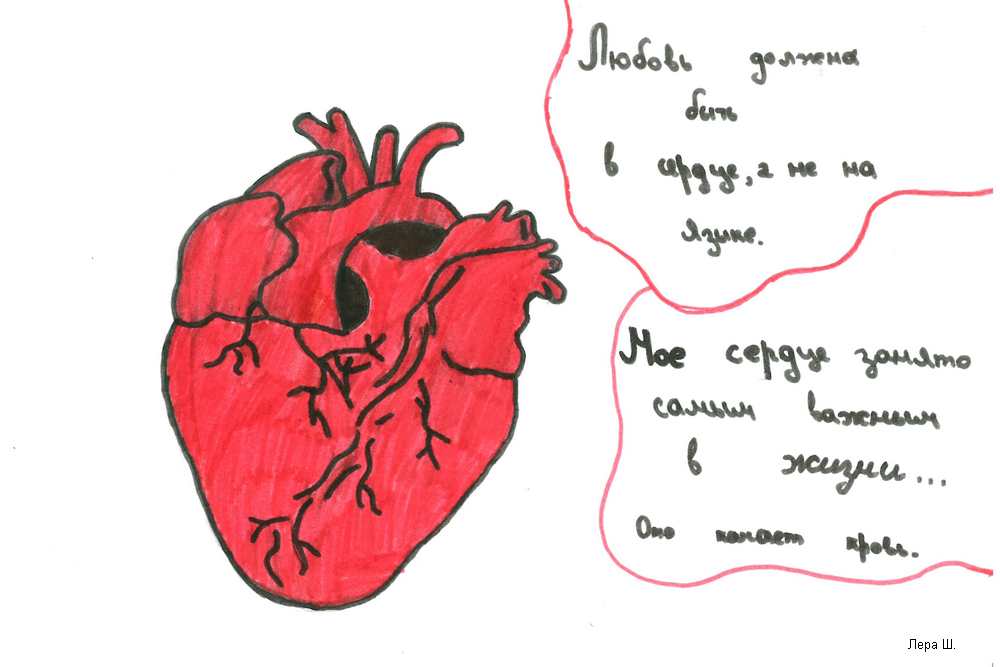 Любовь должна
быть
в сердце, а не на
языке.
Мое сердце занято
самым важным
в жизни...
Оно качает кровь.
Лера Ш.